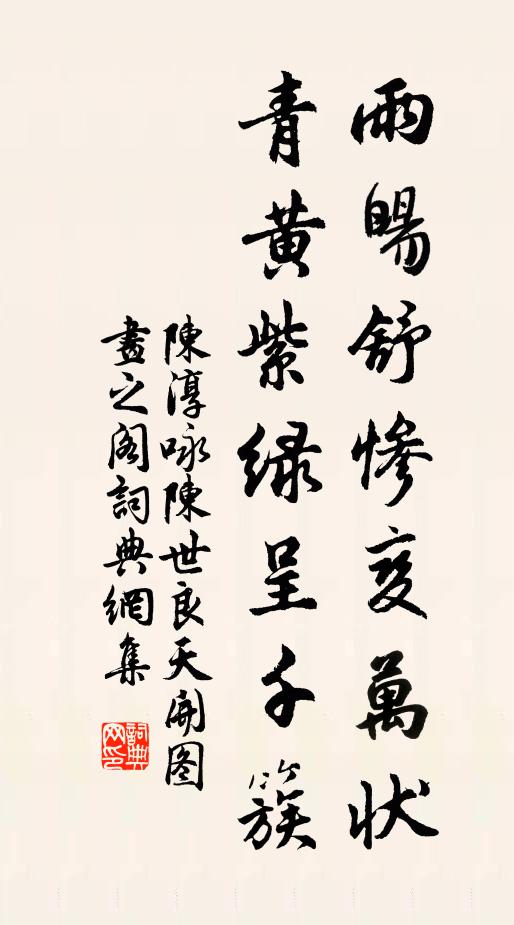 雨暘舒慘变萬状
青黄紫緑呈千簇
陳淳咏陳世良天開图
畫之阁詞典網集
詞典网印